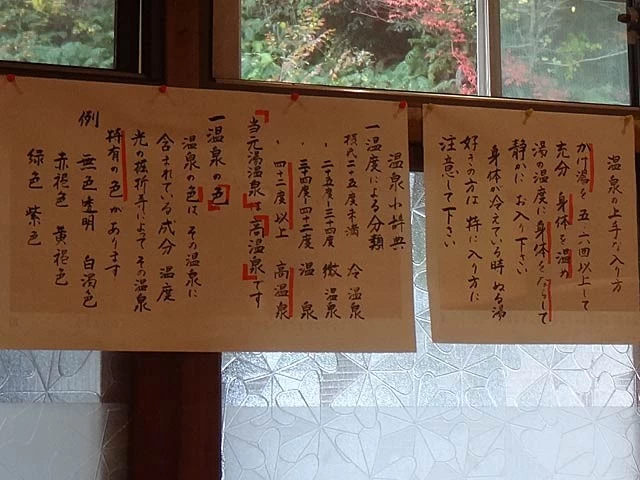 温泉の上手な入り方
かけ湯を五、六回以上して
充分 身体を温め
湯の温度に身体をならして
静かに お入り下さい
身体が冷えている時 ぬる湯
好きの方は 特に入り方に
注意して下さい
温泉小辞典
一温度による分類
摂氏二十五度未満 冷温泉
〃 二十五度-三十四度 微温泉
〃 三十四度-四十二度 温泉
〃 四十二度以上 高温泉
「当元湯温泉は「高温泉」です
一温泉の「色」
温泉の色は その温泉に
含まれている成分 温度
光の屈折等によって その温泉
特有の色があります
例 無色透明 白濁色
赤褐色 黄褐色
緑色 紫色